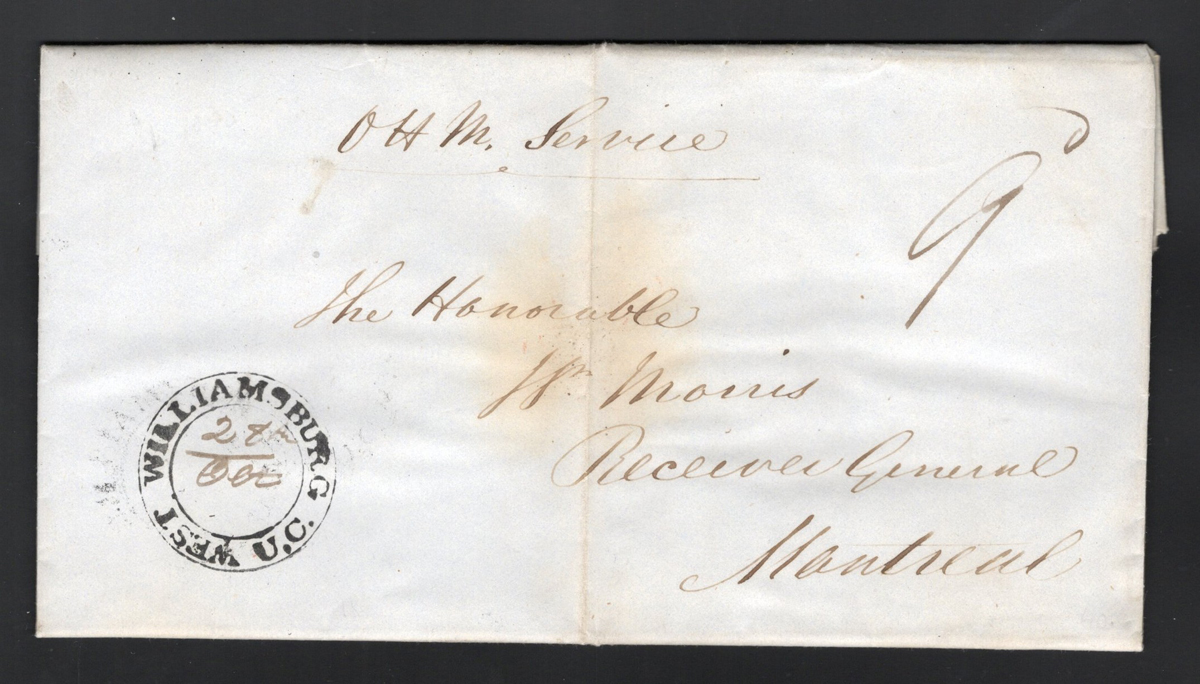 O H M. Service
9 d
The Honorable
Wm Morris
Receiver General
Montreal
WILLIAMSBURG WEST U.C.
Dec